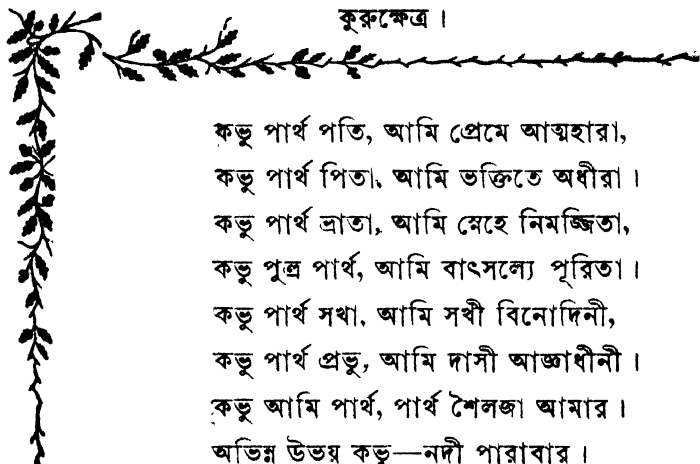 কুরুক্ষেত্র।
কভু পার্থ পতি, আমি প্রেমে আত্মহারা,
কভু পার্থ পিতা, আমি ভক্তিতে অধীরা।
কভু পার্থ ভ্রাতা, আমি স্নেহে নিমজ্জিতা,
কভু পুত্র পার্থ, আমি বাৎসল্যে পূরিতা।
কভু পার্থ সখা, আমি সখী বিনোদিনী,
কভু পার্থ প্রভু, আমি দাসী আজ্ঞাধীনী।
কভু আমি পার্থ, পার্থ শৈলজা আমার।
অভিন্ন উভয় কভু—নদী পারাবার।